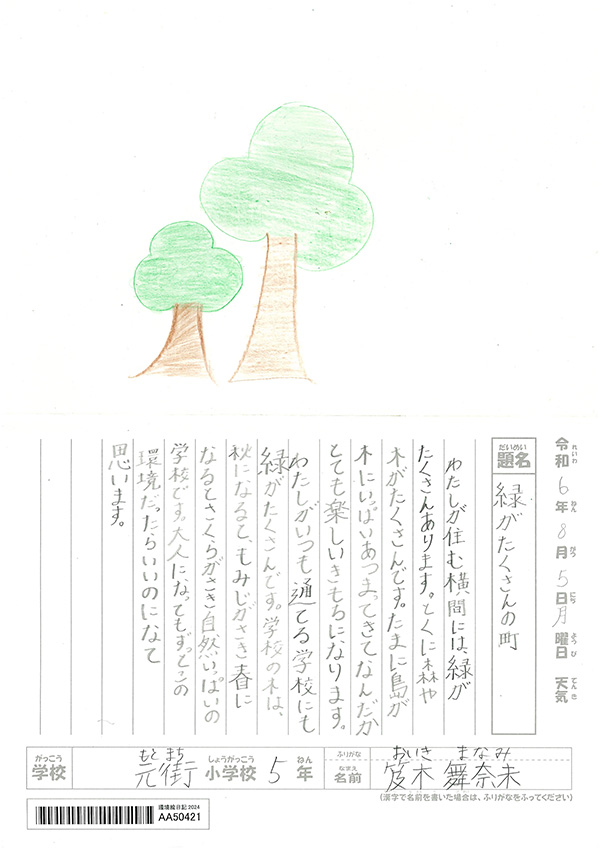 令和6年8月5日月曜日 天気
れいわ ねん がつ にち ようび てんき
だいめい
題名 緑がたくさんの町
わたしが住む横間には、緑が
たくさんあります。とくに森や
木がたくさんです。たまに島が
木にいっぱいあつまってきてなんだか
とても楽しいきもちになります。
わたしがいつも通てる学校にも
緑がたくさんです。学校の木は、
秋になるて、もみじがさき春に
なるとさくらがさき自然いっぱいの
学校です。大人になってもずっとこの
環境だったらいいのになて
思います。
がっこう もとまち しょうがっこう ねん
学校 元街 小学校 5年
ふりがな おいき まなみ
なまえ
名前 笈木 舞奈未
(漢字で名前を書いた場合は、ふりがなをふってください)
環境絵日記2024
AA50421